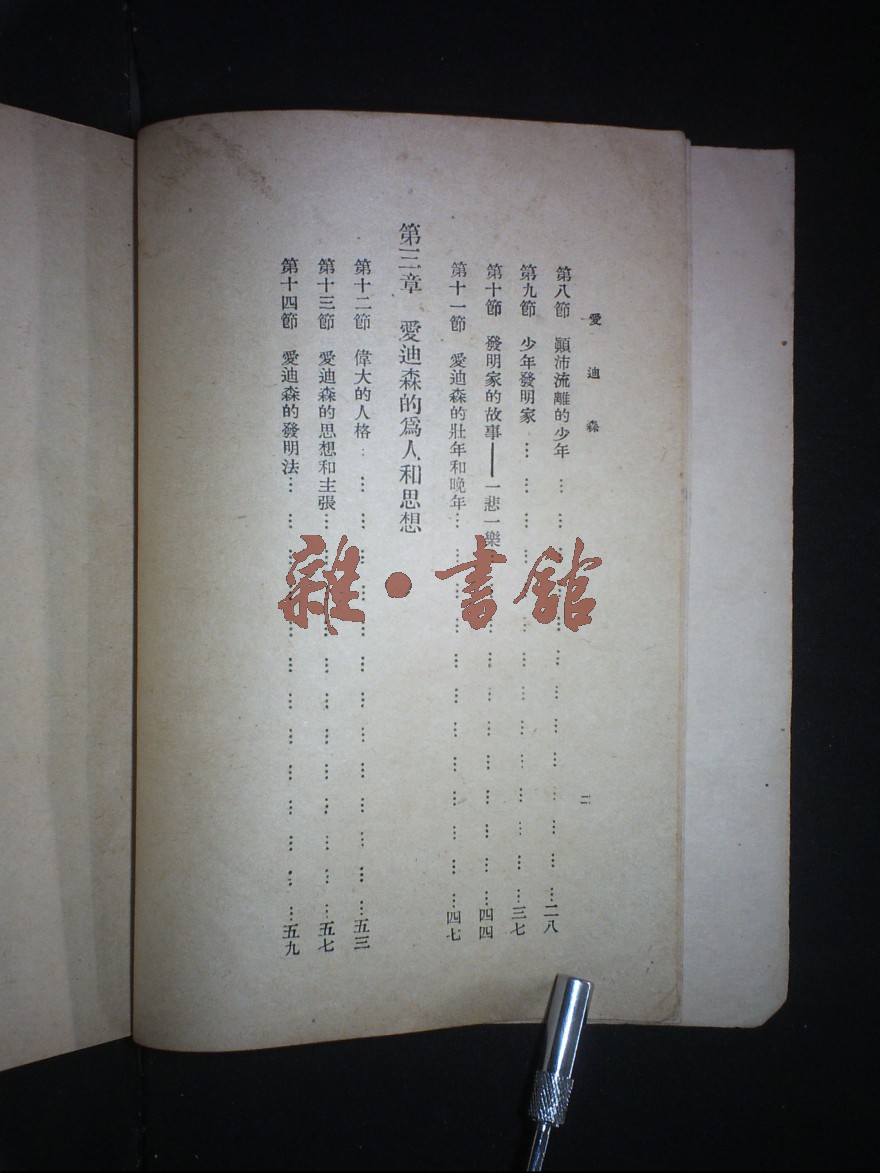 愛迪森
二
第八節 顚沛流離的少年 二八
第九節 少年發明家 三七
第十節 發明家的故事——一悲一樂 四四
第十一節 愛迪森的壯年和晚年 四七
第三章 愛迪森的爲人和思想
第十二節 偉大的人格 五三
第十三節 愛迪森的思想和主張 五七
第十四節 愛迪森的發明法 五九
雜·書館